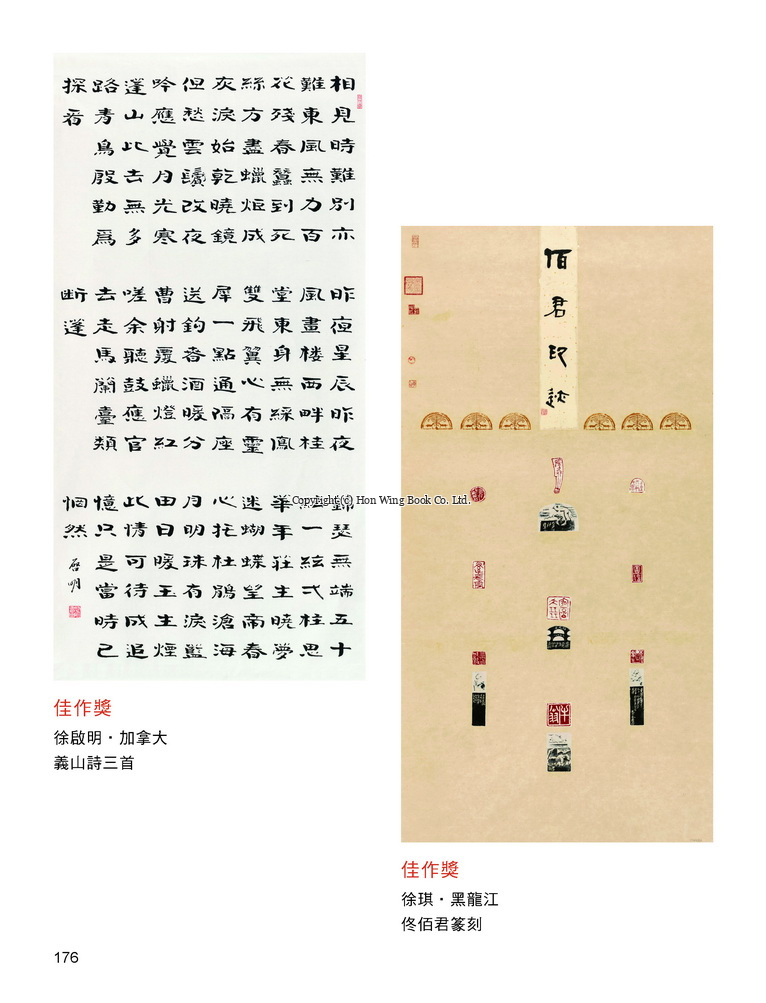 相見時難別亦
難東風無力百
花殘春蠶到死
絲方盡蠟炬成
灰淚始乾曉鏡
但愁雲鬢改夜
吟應覺月光寒
蓬山此去無多
路青鳥殷勤爲
探看
昨夜星辰昨夜
風畫楼西畔桂
堂東身無綵鳳
雙飛翼心有靈
犀一點通隔座
送鈎春酒暖分
曹射覆蠟燈紅
嗟余聽鼓應官
去走馬蘭臺類
断蓬
錦瑟無端五十
一絃弌柱思
華年莊生曉夢
迷蝴蝶望帝春
心托杜鵑滄海
月明珠有淚藍
田日暖玉生煙
此情可待成追
憶只是當時已
惘然
啟明
佳作獎
徐啟明・加拿大
義山詩三首
佰君印迹
Copyright (c) Hon Wing Book Co. Ltd.
佳作獎
徐琪・黑龍江
佟佰君篆刻
176